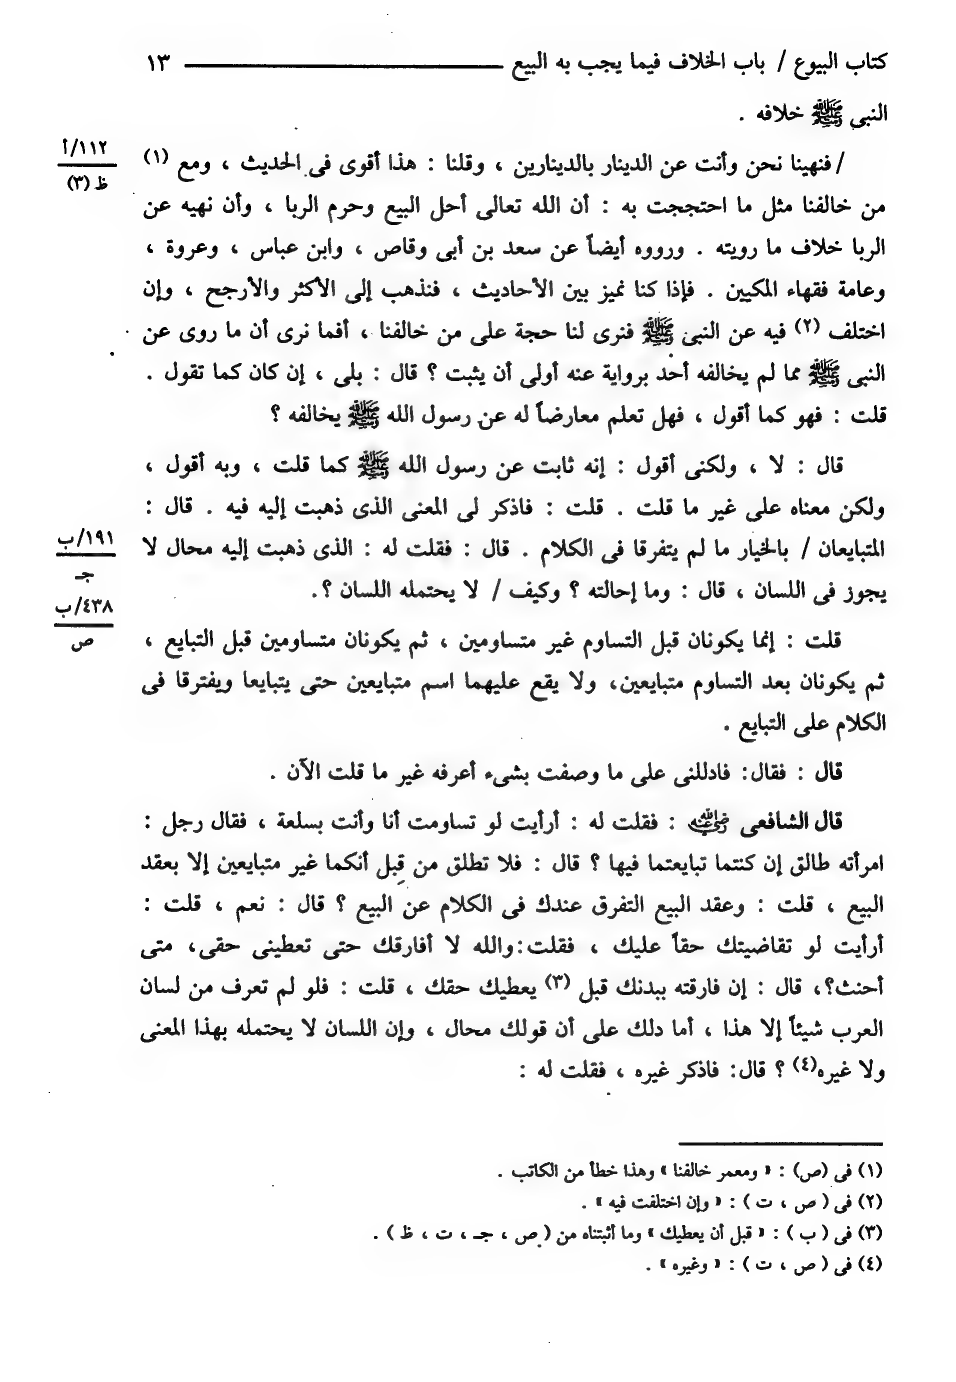 كتاب البيوع / باب الخلاف فيما يجب به البيع ١٣
النبى ﷺ خلافه .
١١٢/أ
ظ (٣)
/ فنهينا نحن وأنت عن الدينار بالدينارين ، وقلنا : هذا أقوى فى الحديث ، ومع (١)
من خالفنا مثل ما احتججت به : أن الله تعالى أحل البيع وحرم الربا ، وأن نهيه عن
الربا خلاف ما رويته . ورووه أيضاً عن سعد بن أبى وقاص ، وابن عباس ، وعروة ،
وعامة فقهاء المكيين . فإذا كنا نميز بين الأحاديث ، فنذهب إلى الأكثر والأرجح ، وإن
اختلف (٢) فيه عن النبى ﷺ فنرى لنا حجة على من خالفنا ، أفما نرى أن ما روى عن
النبى ﷺ مما لم يخالفه أحد برواية عنه أولى أن يثبت ؟ قال : بلى ، إن كان كما تقول .
قلت : فهو كما أقول ، فهل تعلم معارضاً له عن رسول الله ﷺ يخالفه ؟
قال : لا ، ولكنى أقول : إنه ثابت عن رسول الله ﷺ كما قلت ، وبه أقول ،
ولكن معناه على غير ما قلت . قلت : فاذكر لى المعنى الذى ذهبت إليه فيه . قال :
١٩١/ب
جـ
المتبايعان / بالخيار ما لم يتفرقا فى الكلام . قال : فقلت له : الذى ذهبت إليه محال لا
٤٣٨/ب
ص
يجوز فى اللسان ، قال : وما إحالته ؟ وكيف / لا يحتمله اللسان ؟.
قلت : إنما يكونان قبل التساوم غير متساومين ، ثم يكونان متساومين قبل التبايع ،
ثم يكونان بعد التساوم متبايعين، ولا يقع عليهما اسم متبايعين حتى يتبايعا ويفترقا فى
الكلام على التبايع .
قال : فقال: فادللنى على ما وصفت بشىء أعرفه غير ما قلت الآن .
قال الشافعى رضي الله عنه : فقلت له : أرأيت لو تساومت أنا وأنت بسلعة ، فقال رجل :
امرأته طالق إن كنتما تبايعتما فيها ؟ قال : فلا تطلق من قِبل أنكما غير متبايعين إلا بعقد
البيع ، قلت : وعقد البيع التفرق عندك فى الكلام عن البيع ؟ قال : نعم ، قلت :
أرأيت لو تقاضيتك حقاً عليك ، فقلت:والله لا أفارقك حتى تعطينى حقى، متى
أحنث؟، قال : إن فارقته ببدنك قبل (٣) يعطيك حقك ، قلت : فلو لم تعرف من لسان
العرب شيئاً إلا هذا ، أما دلك على أن قولك محال ، وإن اللسان لا يحتمله بهذا المعنى
ولا غيره(٤) ؟ قال: فاذكر غيره ، فقلت له :
(١) فى (ص) : « ومعمر خالفنا » وهذا خطأ من الكاتب .
(٢) فى ( ص ، ت ) : « وإن اختلفت فيه » .
(٣) فى ( ب ) : « قبل أن يعطيك » وما أثبتناه من ( ص ، جـ ، ت ، ظ ) .
(٤) فى ( ص ، ت ) : « وغيره » .